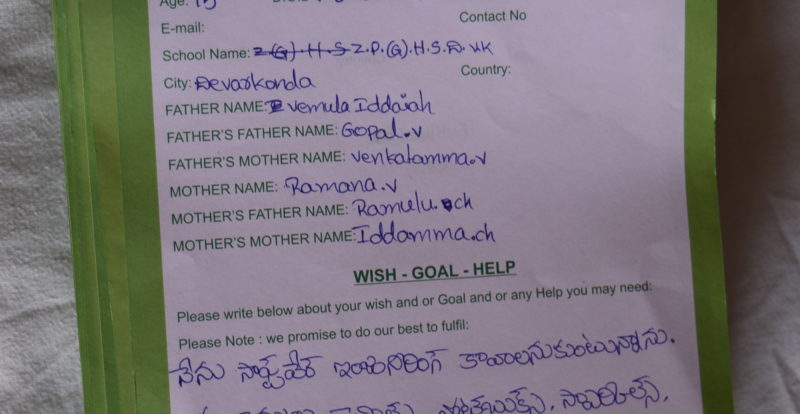 Age: 15
E-mail:
Contact No
School Name: Z.P.(G).H.S.
City: Devarkonda
Country:
FATHER NAME: Vemula Iddaiah
FATHER'S FATHER NAME: Gopal.v
FATHER'S MOTHER NAME: venkatamma.v
MOTHER NAME: Ramana.v
MOTHER'S FATHER NAME: Ramulu.ch
MOTHER'S MOTHER NAME: Iddamma.ch
WISH - GOAL - HELP
Please write below about your wish and or Goal and or any Help you may need:
Please Note : we promise to do our best to fulfil:
నేను సాఫ్ట్‌వేర్ కావాలనుకుంటున్నాను.